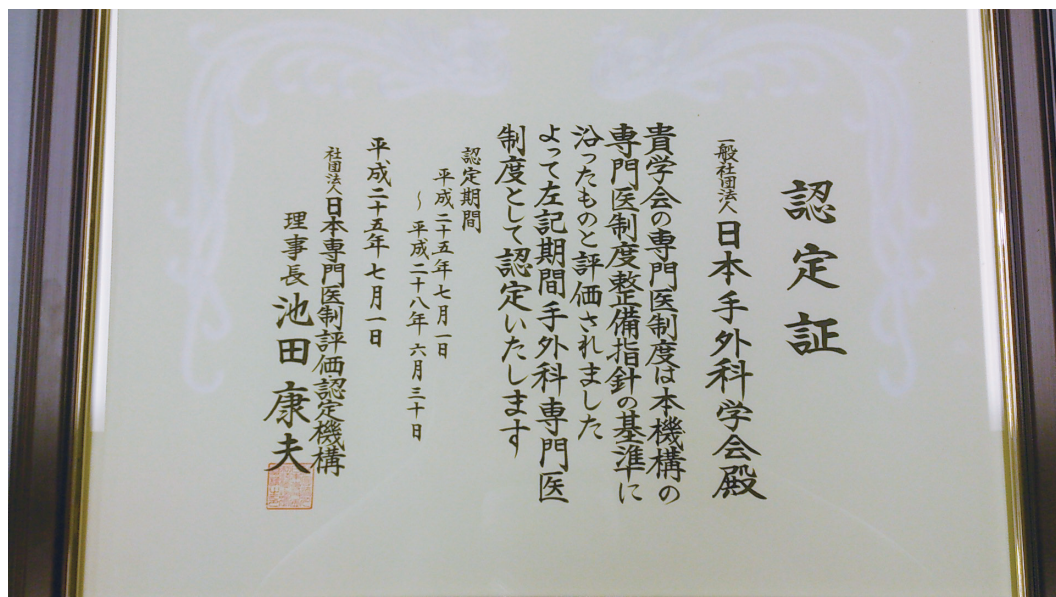 認定証
一般社団法人日本手外科学会殿
貴学会の専門医制度は本機構の
専門医制度整備指針の基準に
沿ったものと評価されました
よって左記期間手外科専門医
制度として認定いたします
認定期間
平成二十五年七月一日
~平成二十八年六月三十日
平成二十五年七月一日
社団法人日本専門医制評価認定機構
理事長池田康夫